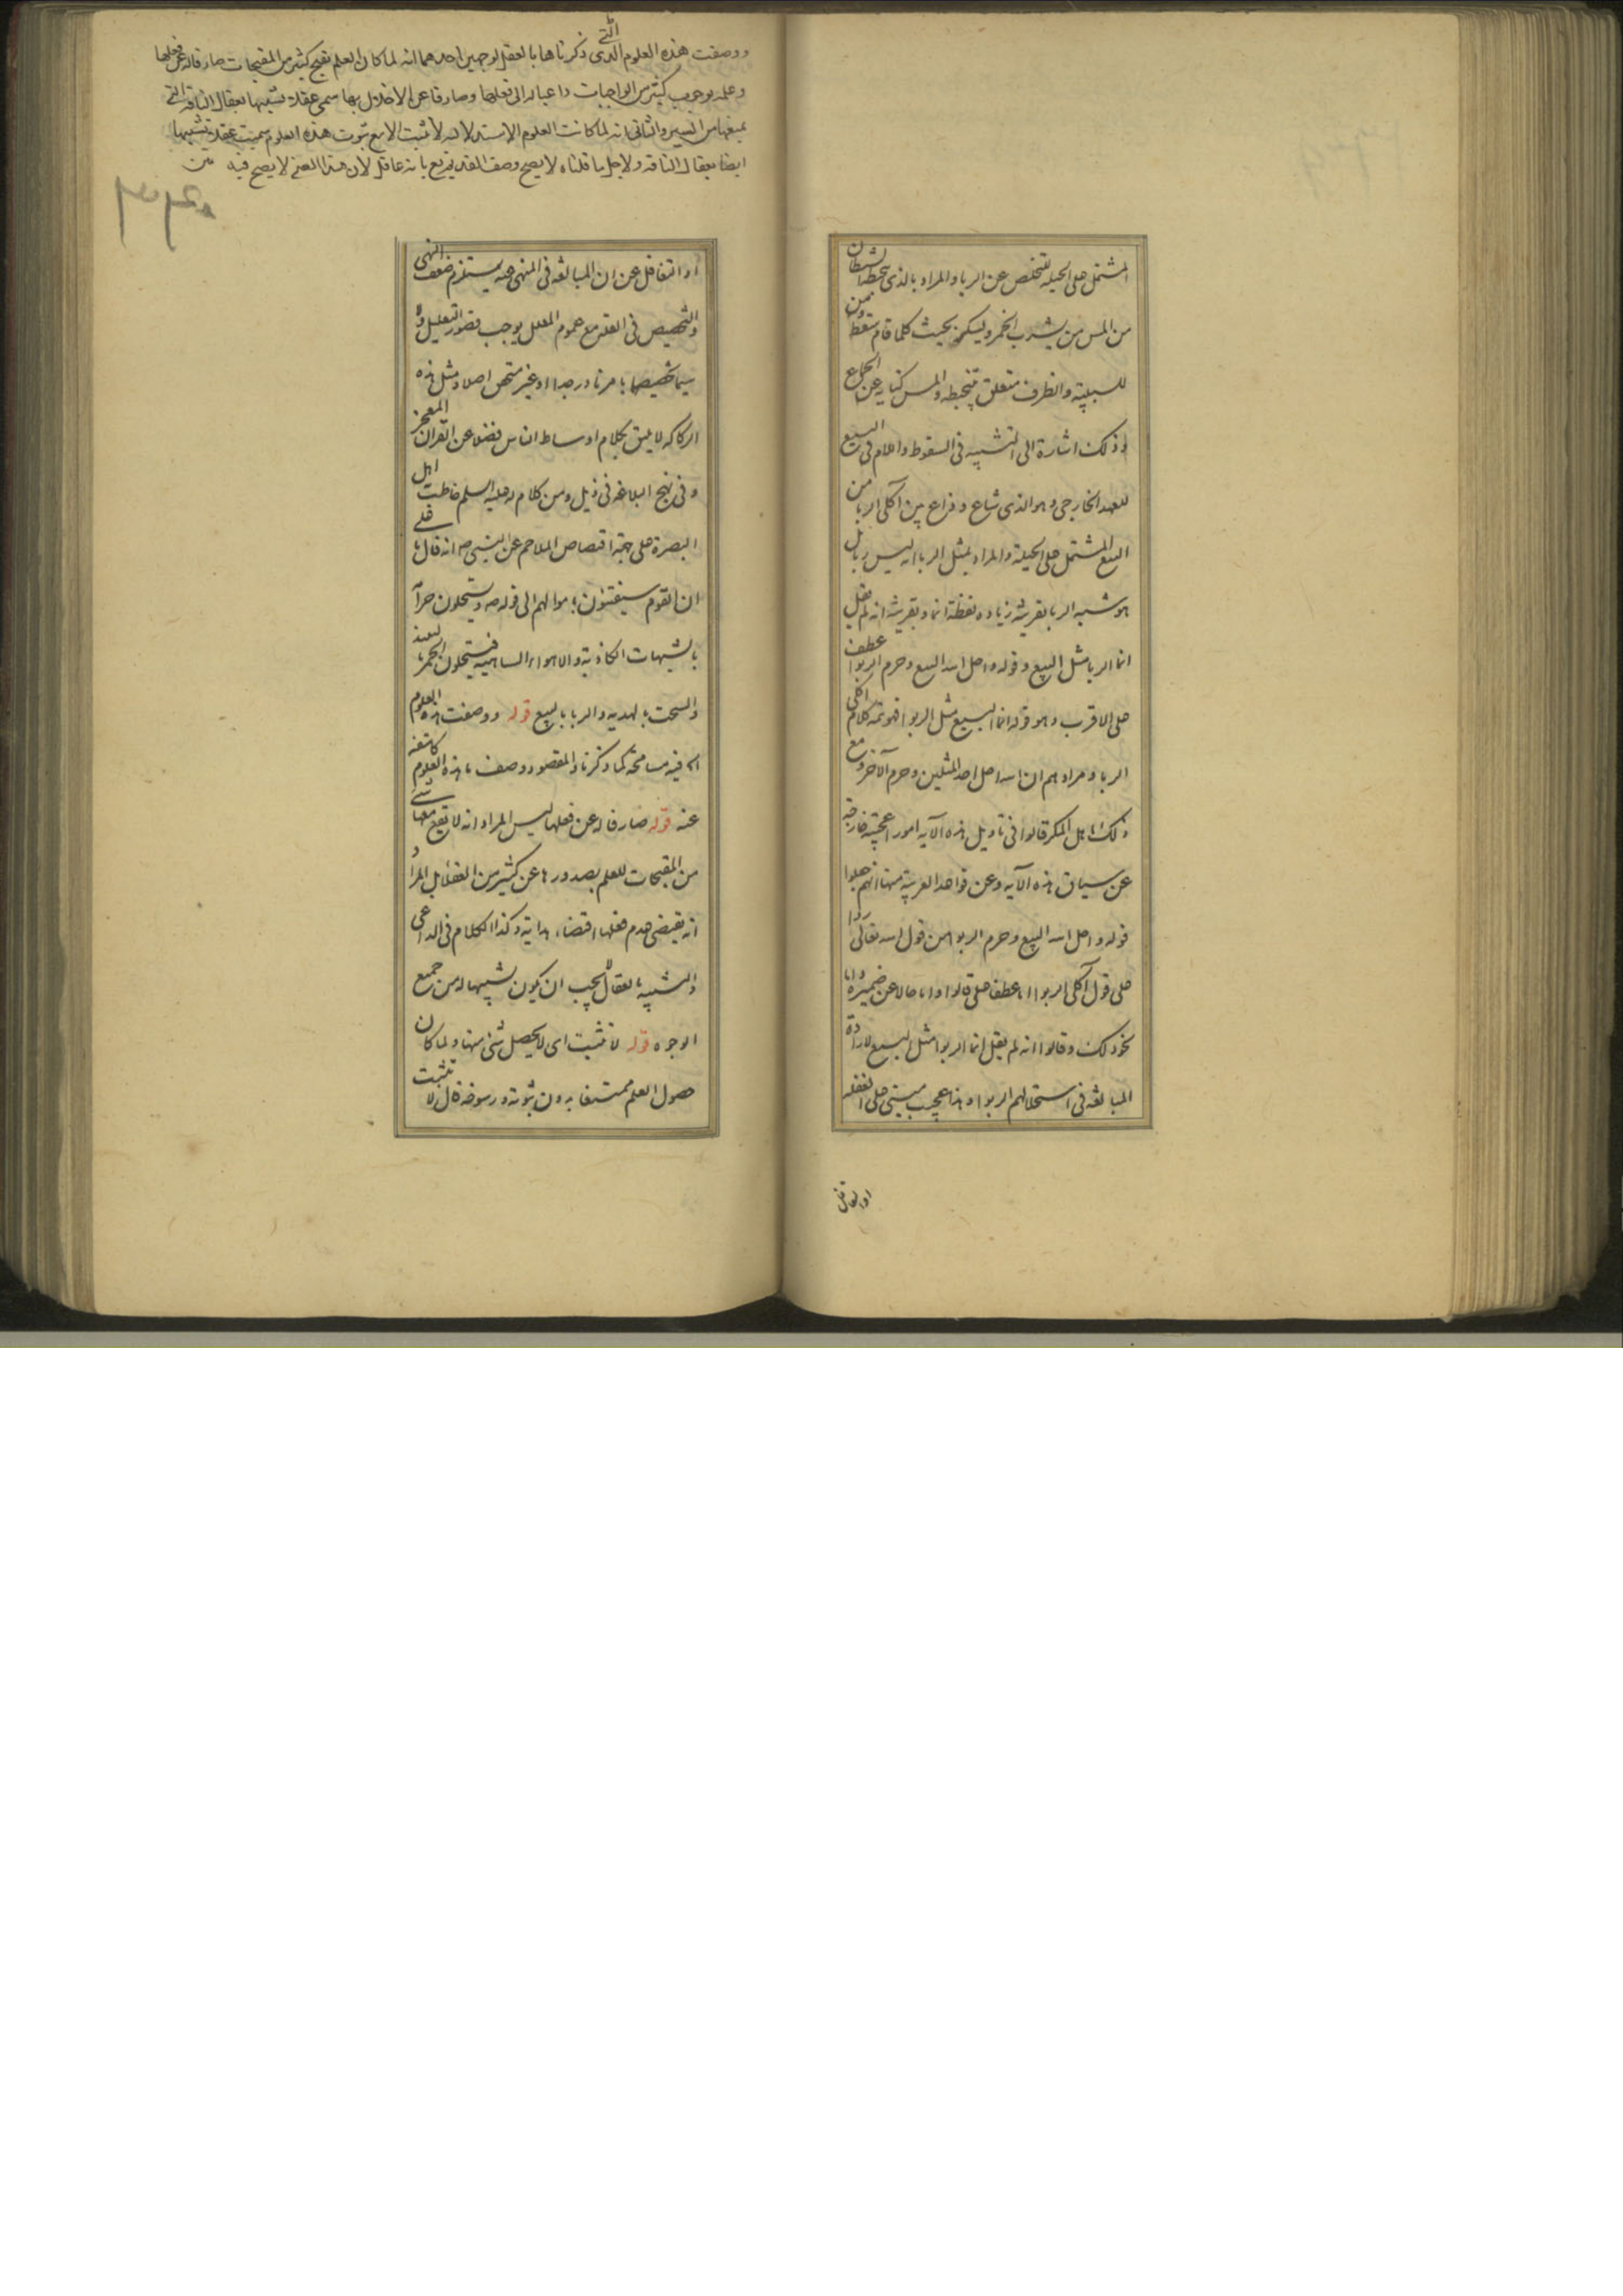 المشتمل على الحيلة للتخلص عن الربا والمراد بالذي يتخبطه الشيطان
من المس من يشرب الخمر ويسكر بحيث كلما قام سقط ومن
للسببية والظرف متعلق بيتخبطه والمس كناية عن الجماع
وذلك اشارة الى التشبيه في السقوط واللام في البيع
للعهد الخارجي وهو الذي شاع وذاع بين آكلي الربا من
البيع المشتمل على الحيلة والمراد بمثل الربا انه ليس ربا بل
هو شبيه الربا بقرينة زيادة لفظة انما وبقرينة انه لم يقل
انما الربا مثل البيع وقوله واحل الله البيع وحرم الربوا عطف
على الاقرب وهو قوله انما البيع مثل الربوا فهو تتمة كلام آكلي
الربا ومرادهم ان الله احل احد المثلين وحرم الآخر ومع
ذلك اهل المكر قالوا في تأويل هذه الآية امورا عجيبة خارجة
عن سياق هذه الآية وعن قواعد العربية منها انهم جعلوا
قوله واحل الله البيع وحرم الربوا من قول الله تعالى ردا
على قول آكلي الربوا اما عطف على قالوا واما حالا عن ضميره واما
نحو ذلك وقالوا انه لم يقل انما الربوا مثل البيع لارادة
المبالغة في استحلالهم الربوا وهذا عجيب مبني على الغفلة
او التغافل
ووصفت هذه العلوم الذي التي ذكرناها بالعقل لوجهين احدهما انه لما كان العلم بقبح كثير من المقبحات صارفا له عن فعلها
وعلمه بوجوب كثير من الواجبات داعيا له الى فعلها وصارفا عن الاخلال بها سمي عقلا تشبيها بعقال الناقة التي
يمنعها من السير والثاني انه لما كانت العلوم الاستدلالية لا تثبت الا مع ثبوت هذه العلوم سميت عقلا تشبيها
ايضا بعقال الناقة ولاجل ما قلناه لا يصح وصف القديم تع بانه عاقل لان هذا المعنى لا يصح فيه
او التغافل عن ان المبالغة في المنهي عنه يستلزم ضعف النهي
والتخصيص في العلة مع عموم المعلل يوجب قصور التعليل ولا
سيما تخصيصها بامر نادر جدا او غير متحقق اصلا ومثل هذه
الركاكة لا يليق بكلام اوساط الناس فضلا عن القرآن المعجز
وفي نهج البلاغة في ذيل ومن كلام له عليه السلم خاطب اهل
البصرة على جهة اقتصاص الملاحم عن النبي صه انه قال يا علي
ان القوم سيفتنون باموالهم الى قوله صه ويستحلون حرامه
بالشبهات الكاذبة والاهواء الساهية فيستحلون الخمر بالنبيذ
والسحت بالهدية والربا بالبيع قوله ووصفت هذه العلوم
اه فيه مسامحة كما ذكرنا والمقصود وصف ما هذه العلوم كاشفة
عنه قوله صارفا له عن فعلها ليس المراد انه لا يقع معها شئ
من المقبحات للعلم بصدورها عن كثير من العقلاء بل المراد
انه يقتضي عدم فعلها اقتضاء ما يته وكذا الكلام في الداعي
والتشبيه بالعقال لا يجب ان يكون تشبيها له من جميع
الوجوه قوله لا تثبت اي لا يحصل شئ منها ولما كان
حصول العلم ممتنعا بدون ثبوته ورسوخه قال لا تثبت